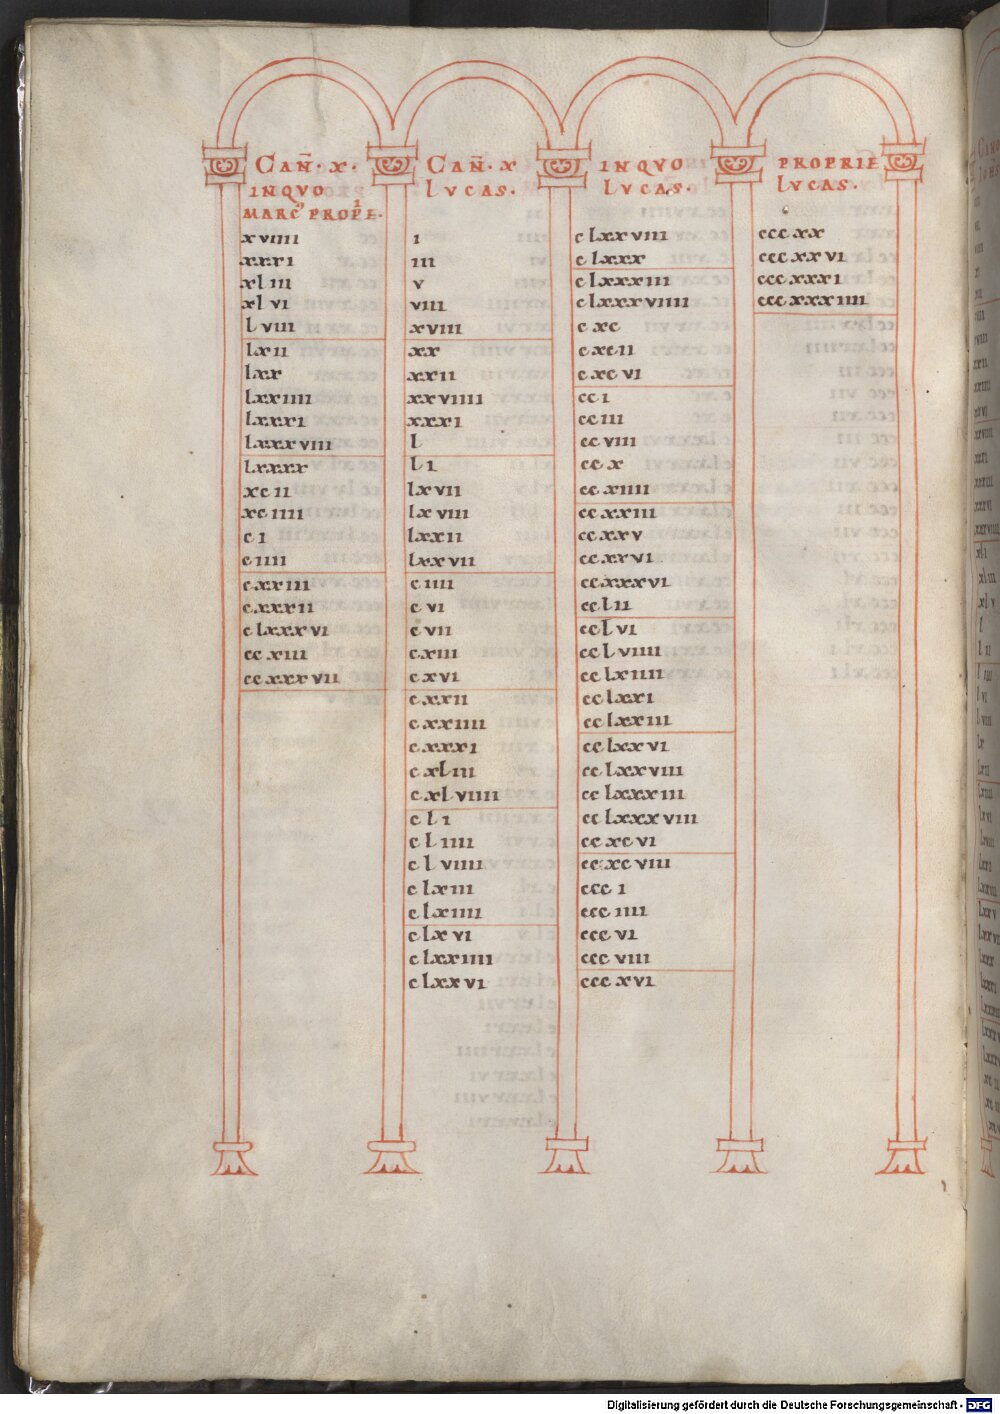 CAÑ · X ·
INQVO
MARC PROPE ·
xviiii
xxxi
xliii
xlvi
lviii
lxii
lxx
lxxiiii
lxxxi
lxxxviii
lxxxx
xcii
xciiii
ci
ciiii
cxxiii
cxxxii
clxxxvi
ccxiii
ccxxxvii
CAÑ · X
LVCAS ·
i
iii
v
viii
xviii
xx
xxii
xxviiii
xxxi
l
li
lxvii
lxviii
lxxii
lxxvii
ciiii
cvi
cvii
cxiii
cxvi
cxxii
cxxiiii
cxxxi
cxliii
cxlviiii
cli
cliiii
clviiii
clxiii
clxiiii
clxvi
clxxiiii
clxxvi
INQVO
LVCAS ·
clxxviii
clxxx
clxxxiii
clxxxviiii
cxc
cxcii
cxcvi
cci
cciii
ccviii
ccx
ccxiiii
ccxxiii
ccxxv
ccxxvi
ccxxxvi
cclii
cclvi
cclviiii
cclxiiii
cclxxi
cclxxiii
cclxxvi
cclxxviii
cclxxxiii
cclxxxviii
ccxcvi
ccxcviii
ccci
ccciiii
cccvi
cccviii
cccxvi
PROPRIE
LVCAS ·
cccxx
cccxxvi
cccxxxi
cccxxxiiii
Digitalisierung gefördert durch die Deutsche Forschungsgemeinschaft - DFG